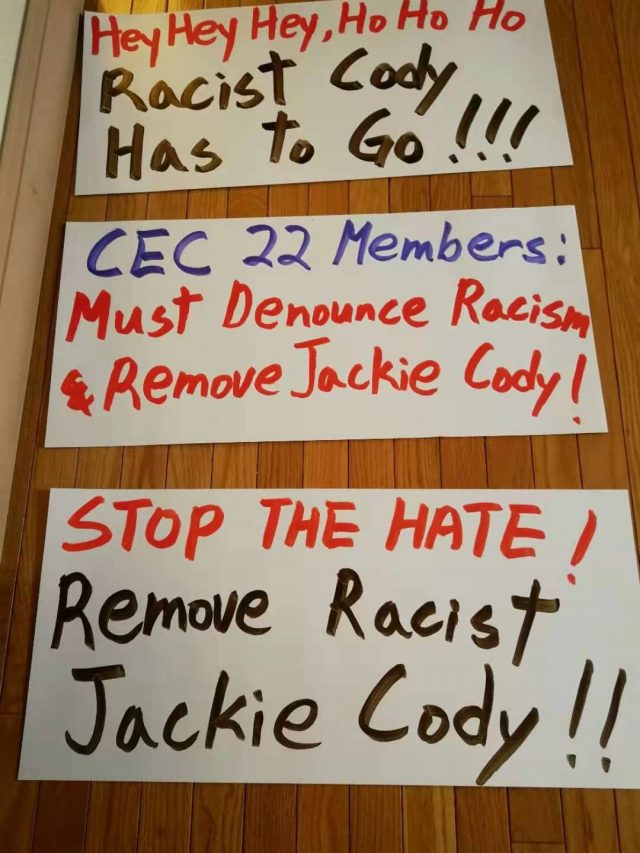 Hey Hey Hey, Ho Ho Ho
Racist Cody
Has to Go !!!
CEC 22 Members:
Must Denounce Racism
& Remove Jackie Cody!
STOP THE HATE!
Remove Racist
Jackie Cody!!